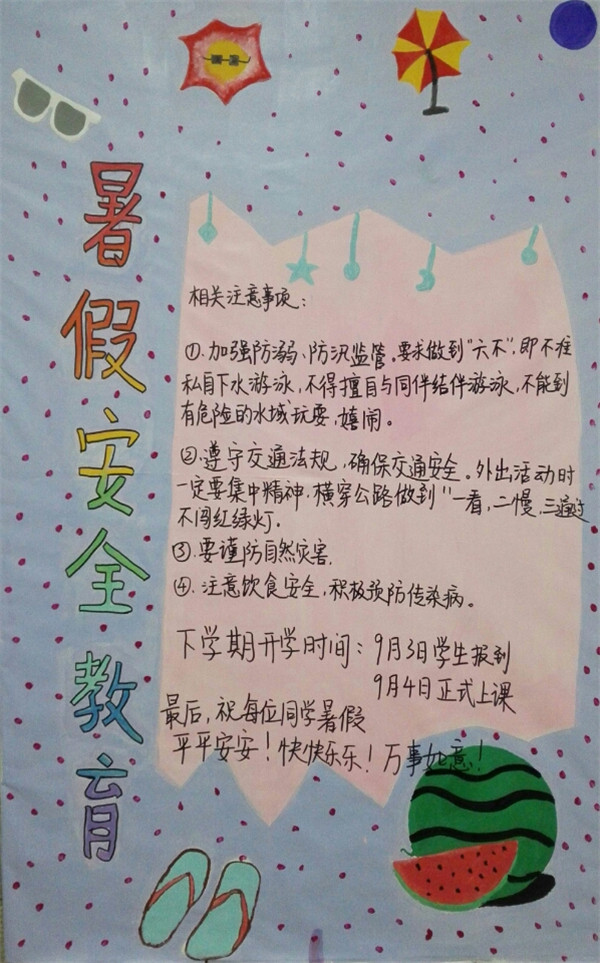 暑假安全教育
相关注意事项：
①.加强防溺、防汛监管。要求做到"六不"，即不准
私自下水游泳，不得擅自与同伴结伴游泳，不能到
有危险的水域玩耍，嬉闹。
②.遵守交通法规，确保交通安全。外出活动时
一定要集中精神，横穿公路做到"一看，二慢，三通过
不闯红绿灯.
③.要谨防自然灾害.
④.注意饮食安全，积极预防传染病。
下学期开学时间：9月3日学生报到
9月4日正式上课
最后，祝每位同学暑假
平平安安！快快乐乐！万事如意！